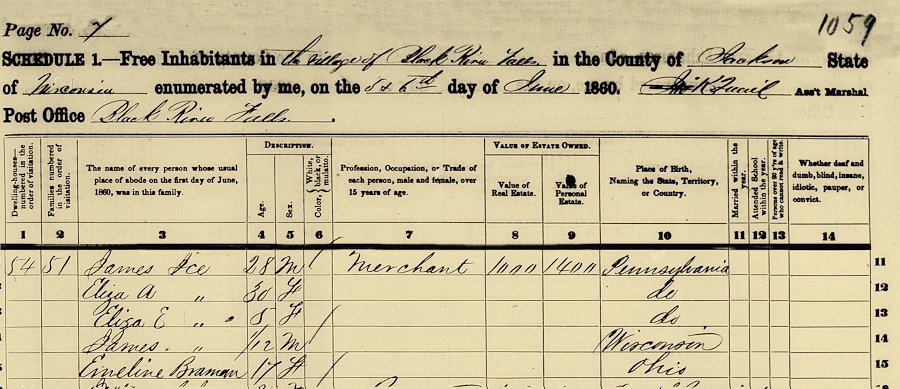 Page No. 7
1059
SCHEDULE 1.—Free Inhabitants in the Village of Black River Falls in the County of Jackson State
of Wisconsin enumerated by me, on the 5 & 6th day of June 1860. Ass't Marshal
Post Office Black River Falls.
Dwelling-houses—numbered in the order of visitation.
Families numbered in the order of visitation.
The name of every person whose usual place of abode on the first day of June, 1860, was in this family.
DESCRIPTION.
Age.
Sex.
Color, White, black, or mulatto.
Profession, Occupation, or Trade of each person, male and female, over 15 years of age.
VALUE OF ESTATE OWNED.
Value of Real Estate.
Value of Personal Estate.
Place of Birth, Naming the State, Territory, or Country.
Married within the year.
Attended School within the year.
Persons over 20 y'rs of age who cannot read & write.
Whether deaf and dumb, blind, insane, idiotic, pauper, or convict.
1 2 3 4 5 6 7 8 9 10 11 12 13 14
54 51 James Ice 28 M / Merchant 1000 1400 Pennsylvania 11
Eliza A " 30 F do 12
Eliza E " 5 F / do 13
James " 1/12 M Wisconsin 14
Emeline Braman 17 F / Ohio 15